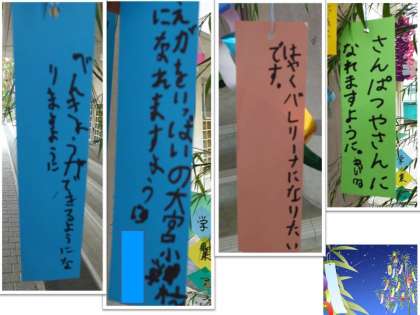 べんきょうができるようにな
りますように
えがおいっぱいの大宮小学校
になれますように
はやくバレリーナになりたい
です。
さんぱつやさんに
なれますように。